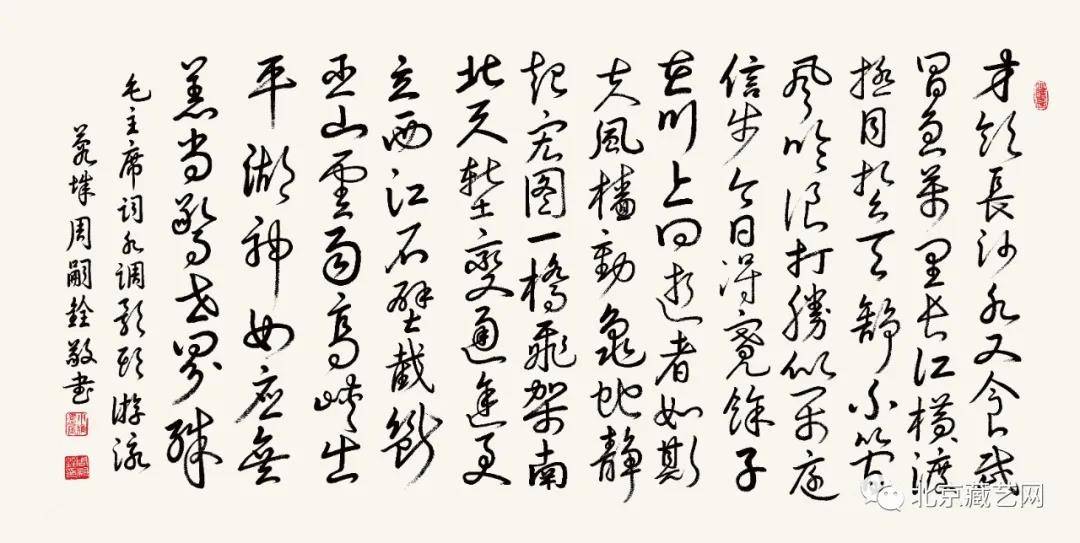 才飲長沙水又食武
昌魚萬里長江橫渡
極目楚天舒不管
風吹浪打勝似閑庭
信步今日得寬餘子
在川上曰逝者如斯
夫風檣動龜蛇靜
起宏图一橋飛架南
北天塹變通途更
立西江石壁截斷
巫山雲雨高峽出
平湖神女應無
恙當驚世界殊
毛主席詞水調歌頭游泳
城周嗣銓敬書
北京藏艺网